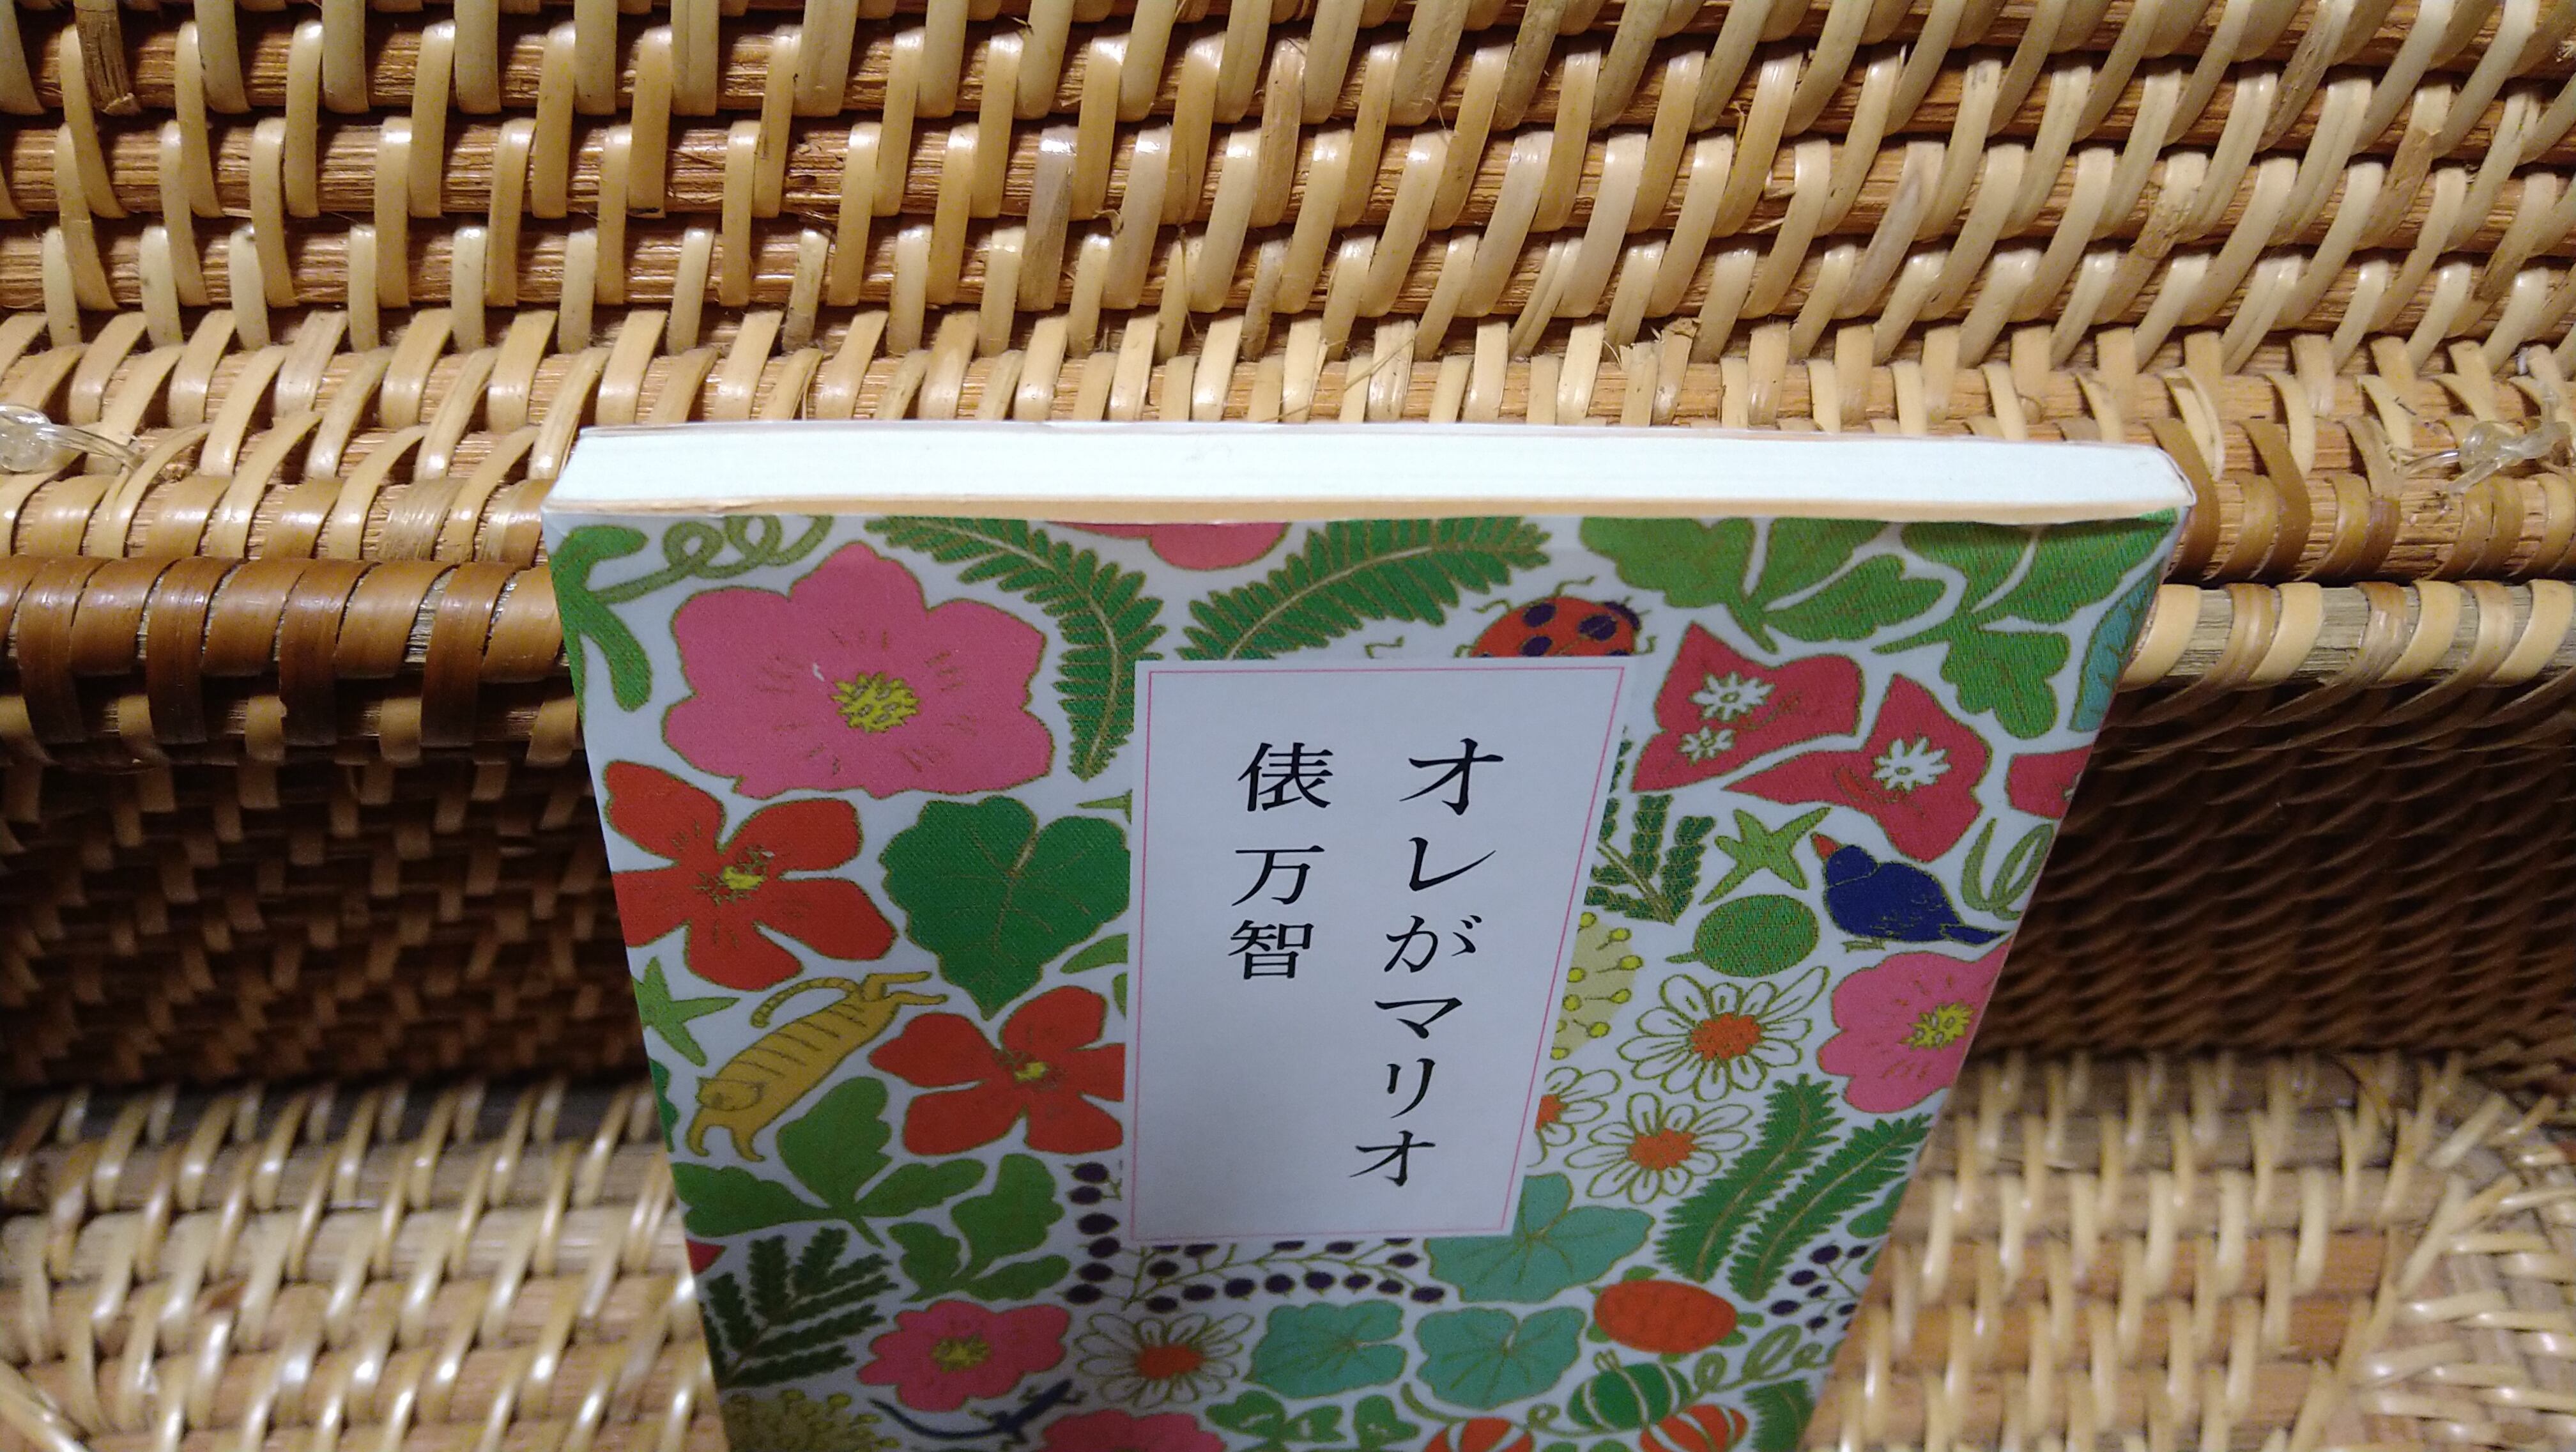 オレがマリオ
俵万智